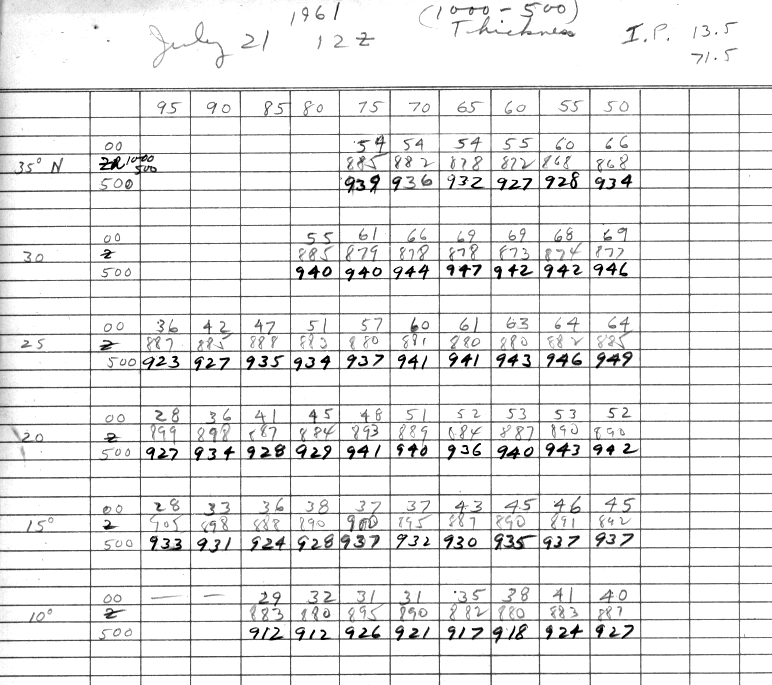 1961 (1000-500)
July 21 12Z Thickness I.P. 13.5
71.5
95 90 85 80 75 70 65 60 55 50
00 54 54 54 55 60 66
35° N 1000 500 885 882 878 872 868 868
500 939 936 932 927 928 934
00 55 61 66 69 69 68 69
30 Z 885 879 878 878 873 874 877
500 940 940 944 947 942 942 946
00 36 42 47 51 57 60 61 63 64 64
25 Z 887 885 888 883 880 881 880 880 882 885
500 923 927 935 934 937 941 941 943 946 949
00 28 36 41 45 48 51 52 53 53 52
20 Z 899 898 887 884 893 889 884 887 890 890
500 927 934 928 929 941 940 936 940 943 942
00 28 33 36 38 37 37 43 45 46 45
15° Z 905 898 888 890 900 895 887 890 891 892
500 933 931 924 928 937 932 930 935 937 937
00 — — 29 32 31 31 35 38 41 40
10° Z 883 880 895 890 882 880 883 887
500 912 912 926 921 917 918 924 927